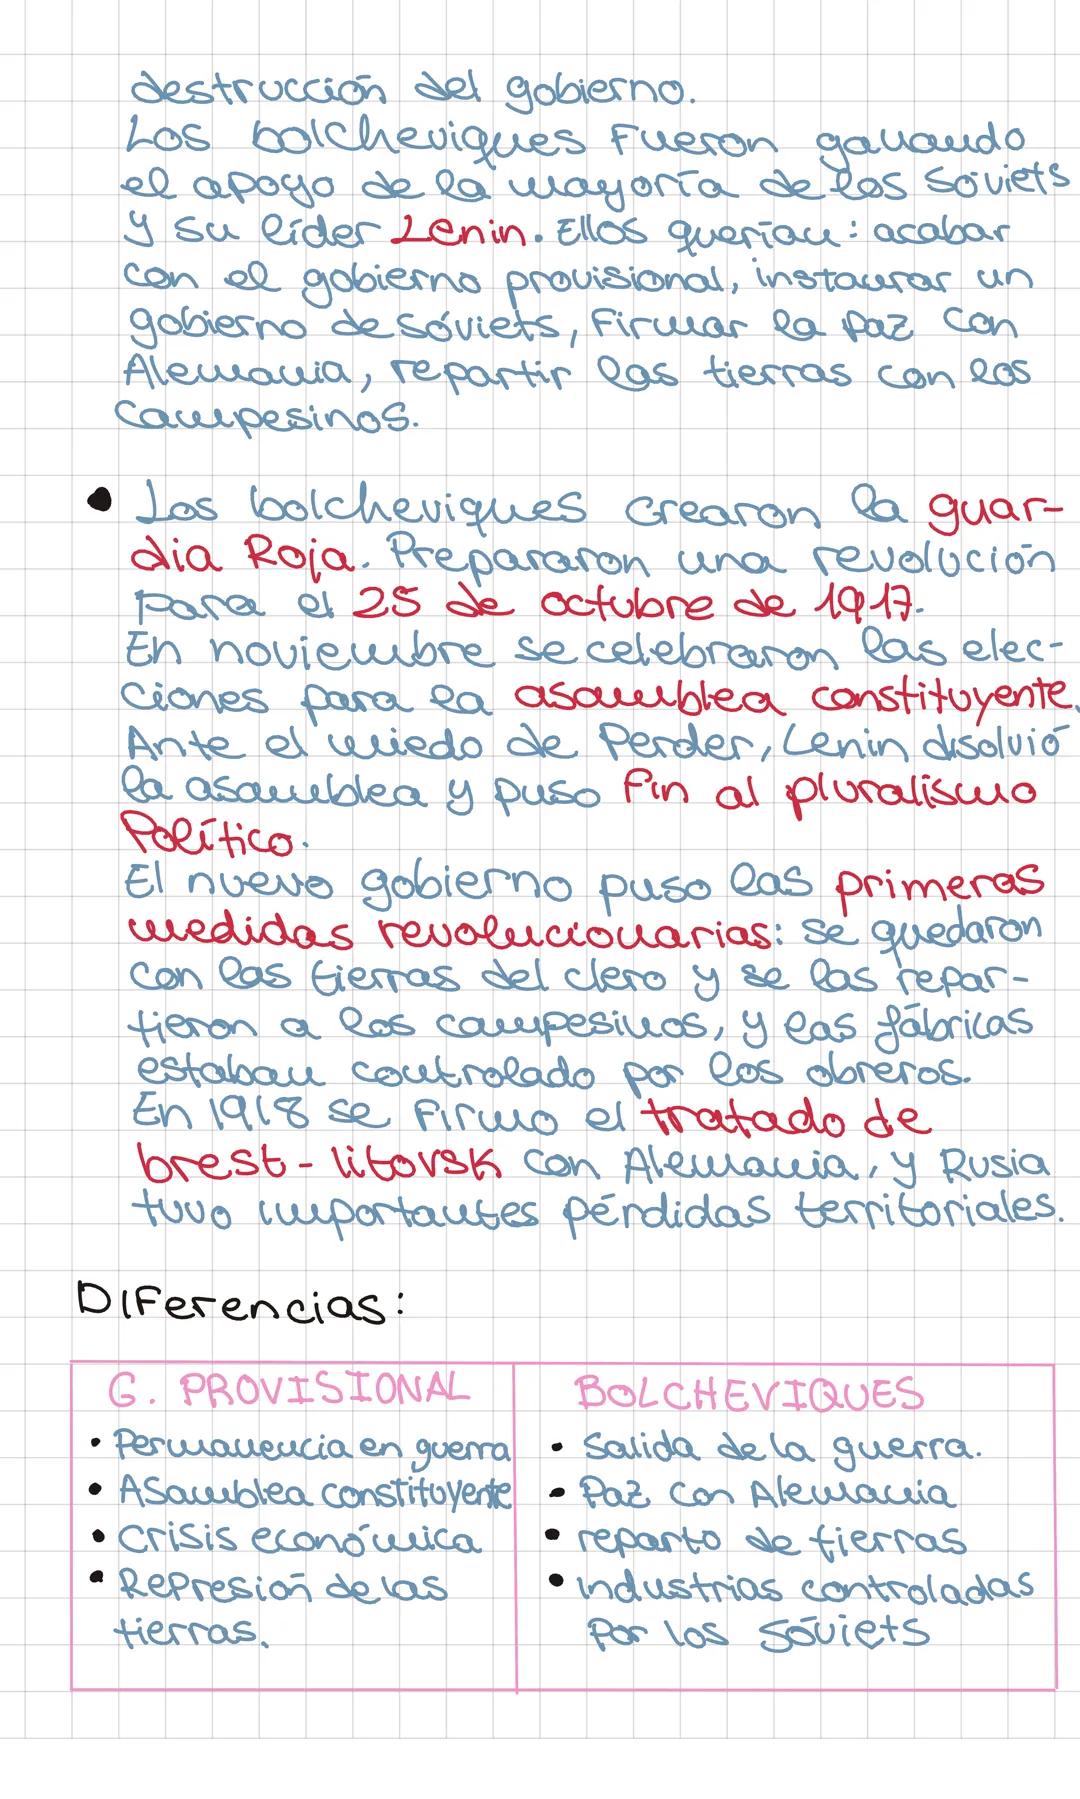 destrucción del gobierno.
Los bolcheviques fueron ganando
el apoyo de la mayoría de los sóviets
y su líder Lenin. Ellos querían: acabar
con el gobierno provisional, instaurar un
gobierno de sóviets, firmar la paz con
Alemania, repartir las tierras con los
campesinos.
• Los bolcheviques crearon la guar-
dia Roja. Prepararon una revolución
para el 25 de octubre de 1917.
En noviembre se celebraron las elec-
ciones para la asamblea constituyente.
Ante el miedo de perder, Lenin disolvió
la asamblea y puso fin al pluralismo
Político.
El nuevo gobierno puso las primeras
medidas revolucionarias: se quedaron
con las tierras del clero y se las repar-
tieron a los campesinos, y las fábricas
estaban controlado por los obreros.
En 1918 se firmo el tratado de
brest-litovsk con Alemania, y Rusia
tuvo importantes pérdidas territoriales.
Diferencias:
G. PROVISIONAL
• Permanencia en guerra
• Asamblea constituyente
• Crisis económica
• Represión de las
tierras.
BOLCHEVIQUES
• Salida de la guerra.
• Paz con Alemania
• reparto de tierras
• industrias controladas
por los sóviets